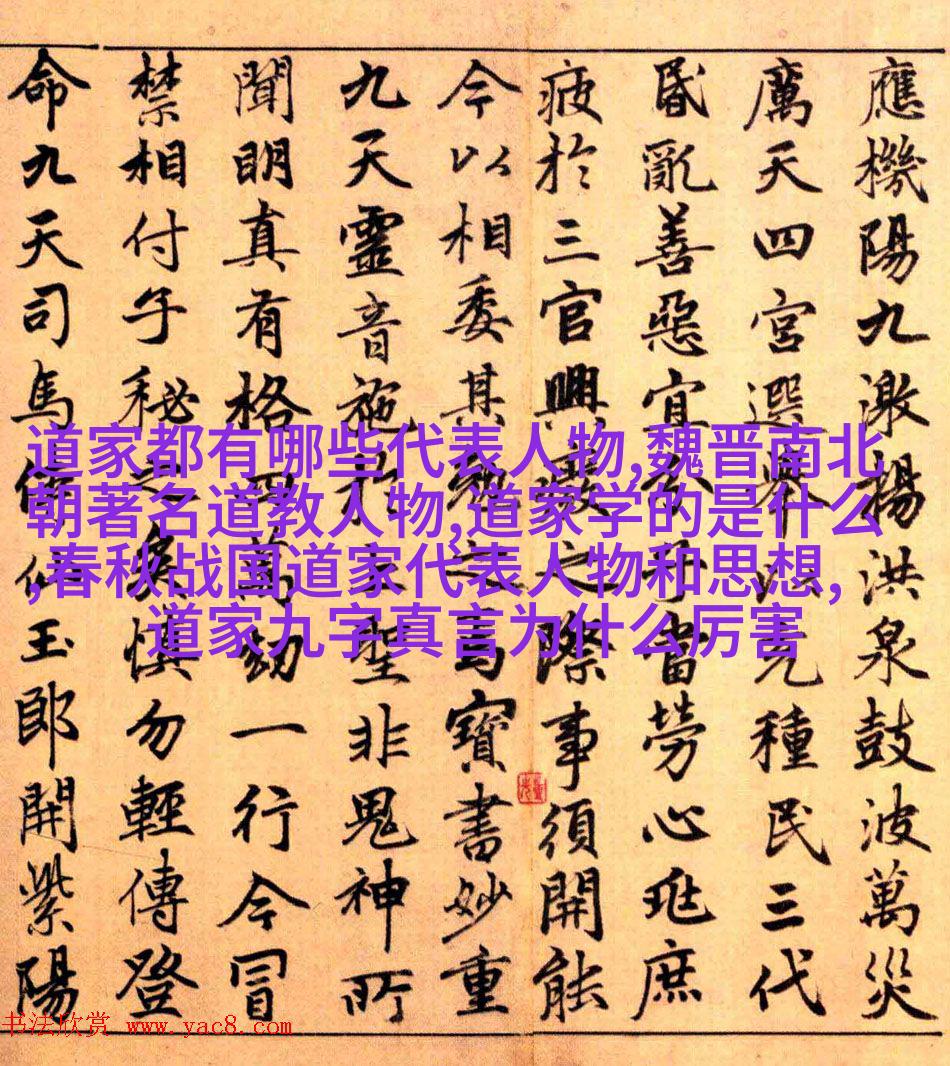 應機陽九激揚洪泉鼓波萬災
厲天四宮選舉以充種民三代
昬亂善惡宜分子當勞心兆庶
疲於三官興廢之際事須開能
今以相委其勗之焉寶書妙重
九天靈音施於上聖非鬼神所
聞明真有格四萬劫一行今冒
禁相付子秘之矣慎勿輕傳登
命九天司馬侍仙玉郎開紫陽
道家都有哪些代表人物,魏晋南北
朝著名道教人物,道家学的是什么
,春秋战国道家代表人物和思想,
道家九字真言为什么厉害
书法欣赏 www.yac8.com